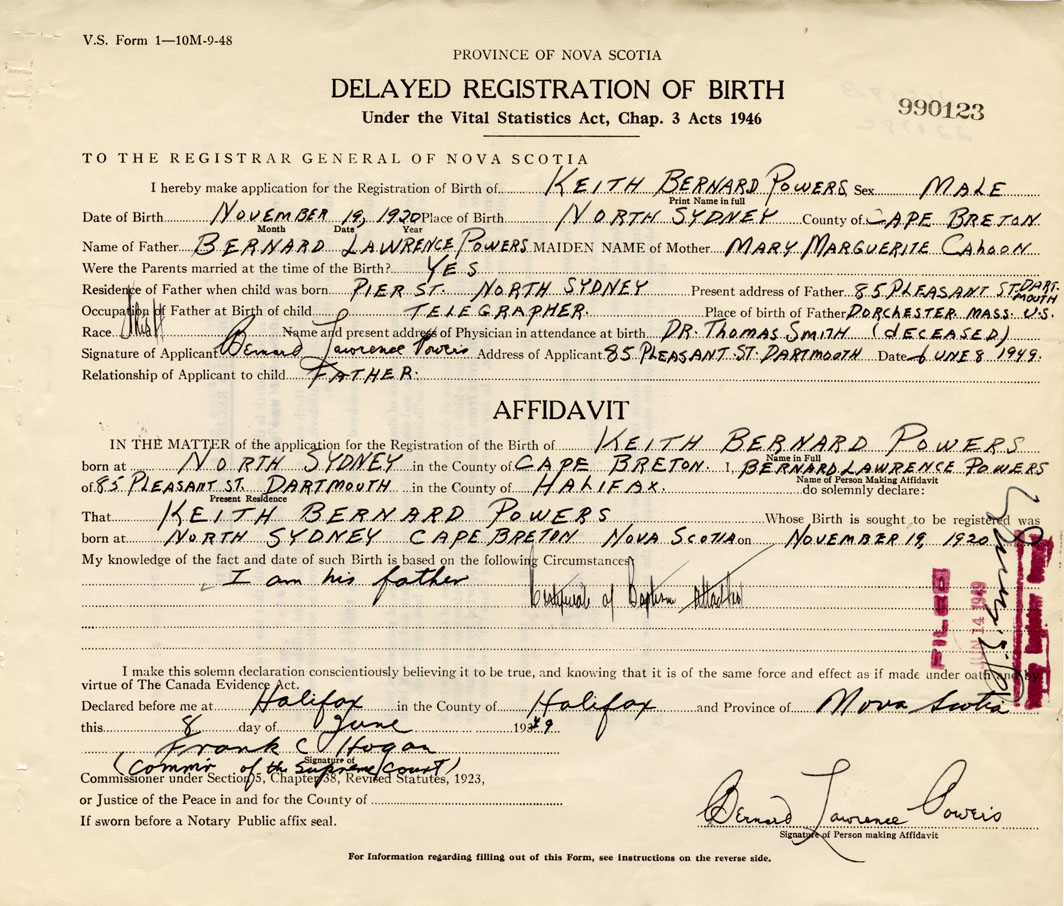 V.S. Form 1—10M-9-48
PROVINCE OF NOVA SCOTIA
DELAYED REGISTRATION OF BIRTH
990123
Under the Vital Statistics Act, Chap. 3 Acts 1946
TO THE REGISTRAR GENERAL OF NOVA SCOTIA
I hereby make application for the Registration of Birth of KEITH BERNARD POWERS Sex MALE
Print Name in full
Date of Birth NOVEMBER 19, 1920 Place of Birth NORTH SYDNEY County of CAPE BRETON
Month Date Year
Name of Father BERNARD LAWRENCE POWERS. MAIDEN NAME of Mother MARY MARGUERITE CAHOON
Were the Parents married at the time of the Birth? YES
Residence of Father when child was born PIER ST. NORTH SYDNEY Present address of Father 85 PLEASANT ST. DARTMOUTH
Occupation of Father at Birth of child TELEGRAPHER. Place of birth of Father DORCHESTER MASS. U.S.
Race Name and present address of Physician in attendance at birth DR. THOMAS SMITH (DECEASED)
Signature of Applicant Bernard Lawrence Powers Address of Applicant 85 PLEASANT ST. DARTMOUTH Date JUNE 8 1949.
Relationship of Applicant to child FATHER.
AFFIDAVIT
IN THE MATTER of the application for the Registration of the Birth of KEITH BERNARD POWERS
Name in Full
born at NORTH SYDNEY in the County of CAPE BRETON. I, BERNARD LAWRENCE POWERS
Name of Person Making Affidavit
of 85 PLEASANT ST. DARTMOUTH in the County of HALIFAX. do solemnly declare:
Present Residence
That KEITH BERNARD POWERS Whose Birth is sought to be registered was
born at NORTH SYDNEY CAPE BRETON NOVA SCOTIA on NOVEMBER 19, 1920
My knowledge of the fact and date of such Birth is based on the following Circumstances
I am his father
Certificate of Baptism Attached
FILED
JUN 14 1949
I make this solemn declaration conscientiously believing it to be true, and knowing that it is of the same force and effect as if made under oath and by
virtue of The Canada Evidence Act.
Declared before me at Halifax in the County of Halifax and Province of Nova Scotia
this 8 day of June 1949
Frank C Hogan
Signature of
(Commr of the Supreme Court)
Commissioner under Section 5, Chapter 38, Revised Statutes, 1923,
or Justice of the Peace in and for the County of
If sworn before a Notary Public affix seal.
Bernard Lawrence Powers
Signature of Person making Affidavit
For Information regarding filling out of this Form, see instructions on the reverse side.